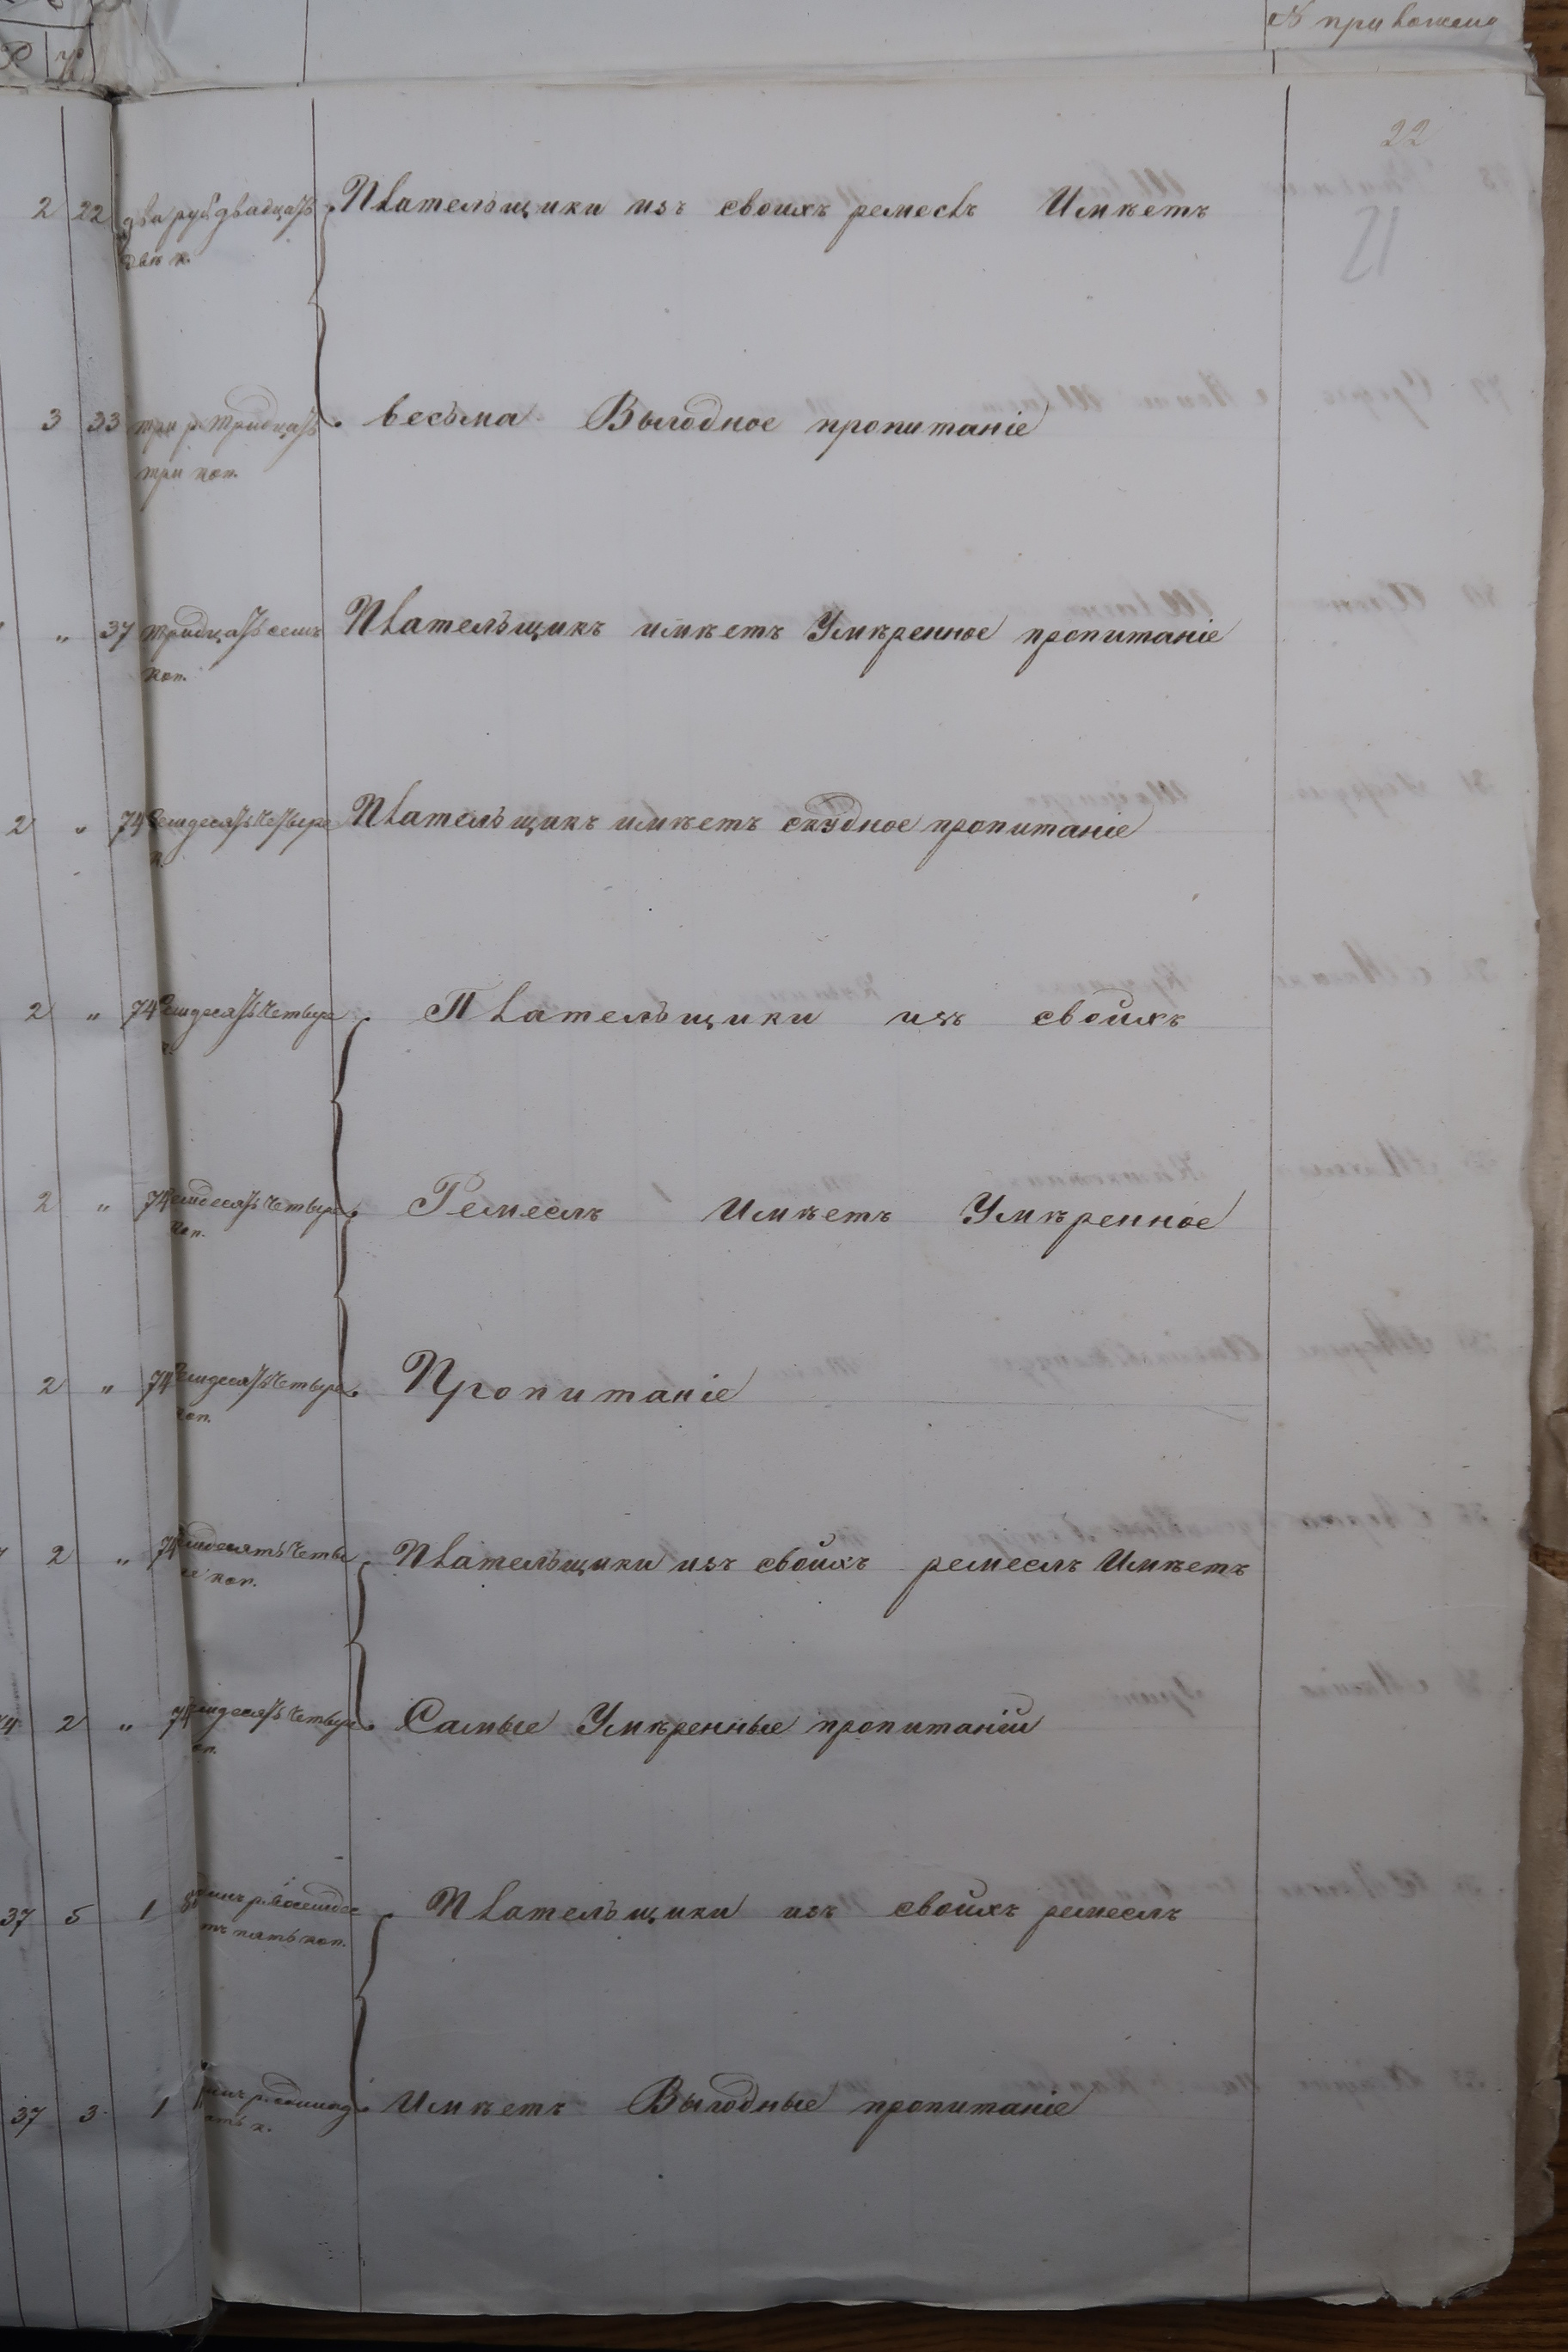 № приложено
22
21
2 22 два руб двадцать Плательщики изъ своихъ ремеслъ Имѣетъ
двѣ к.
3 33 три р. тридцать весьма Выгодное пропитаніе
три коп.
„ 37 тридцать семь Плательщикъ имѣетъ Умѣренное пропитаніе
коп.
2 „ 74 семдесятъ четыре Плательщикъ имѣетъ скудное пропитаніе
к.
2 „ 74 семдесятъ четыре Плательщики изъ своихъ
к.
2 „ 74 семдесятъ четыре Ремеслъ Имѣетъ Умѣренное
коп.
2 „ 74 семдесятъ четыре Пропитаніе
коп.
2 „ 74 семдесятъ четы Плательщики изъ своихъ ремеслъ Имѣетъ
ре коп.
2 „ 74 семдесятъ четыре Самые Умѣренные пропитаніи
коп.
37 5 1 Плательщики изъ своихъ ремеслъ
тъ пять коп.
37 3 1 Имѣетъ Выгодные пропитаніе